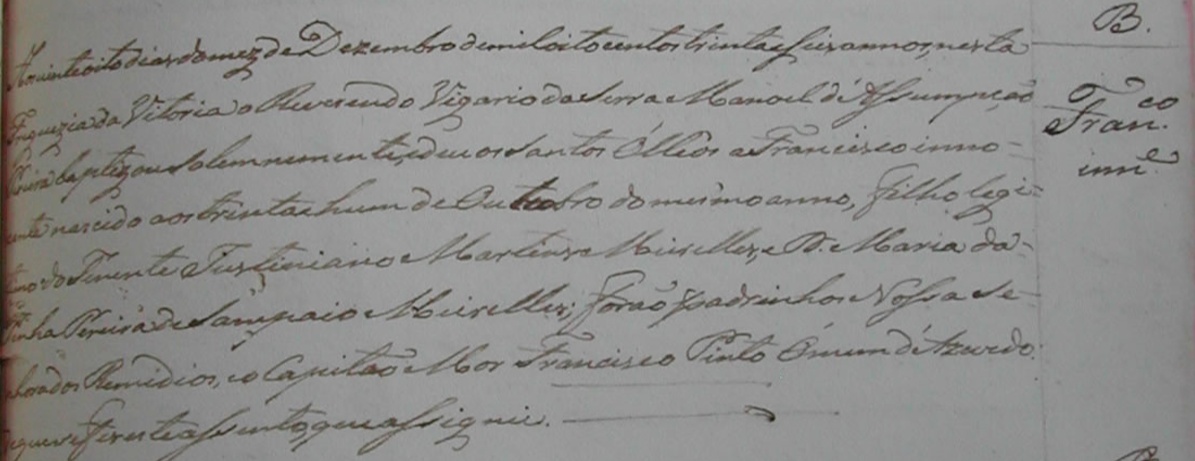 Aos vinte oito dias do mez de Dezembro de mil oito centos trinta e seis annos, nesta
Freguezia da Vitoria o Reverendo Vigario da Serra Manoel d'Assumpção
Pereira baptizou solemnemente, e deu os Santos Ólleos a Francisco inno-
cente nascido aos trinta e hum de Outubro do mesmo anno, filho legi-
timo do Tenente Justiniano Martins Meirelles, e D. Maria da
Penha Pereira de Sampaio Meirelles; forão padrinhos Nossa Se-
nhora dos Remedios, e o Capitão Mor Francisco Pinto Omem d'Azevedo:
de que fiz este assento, que assignei.
B.
Fran.co
inn.e